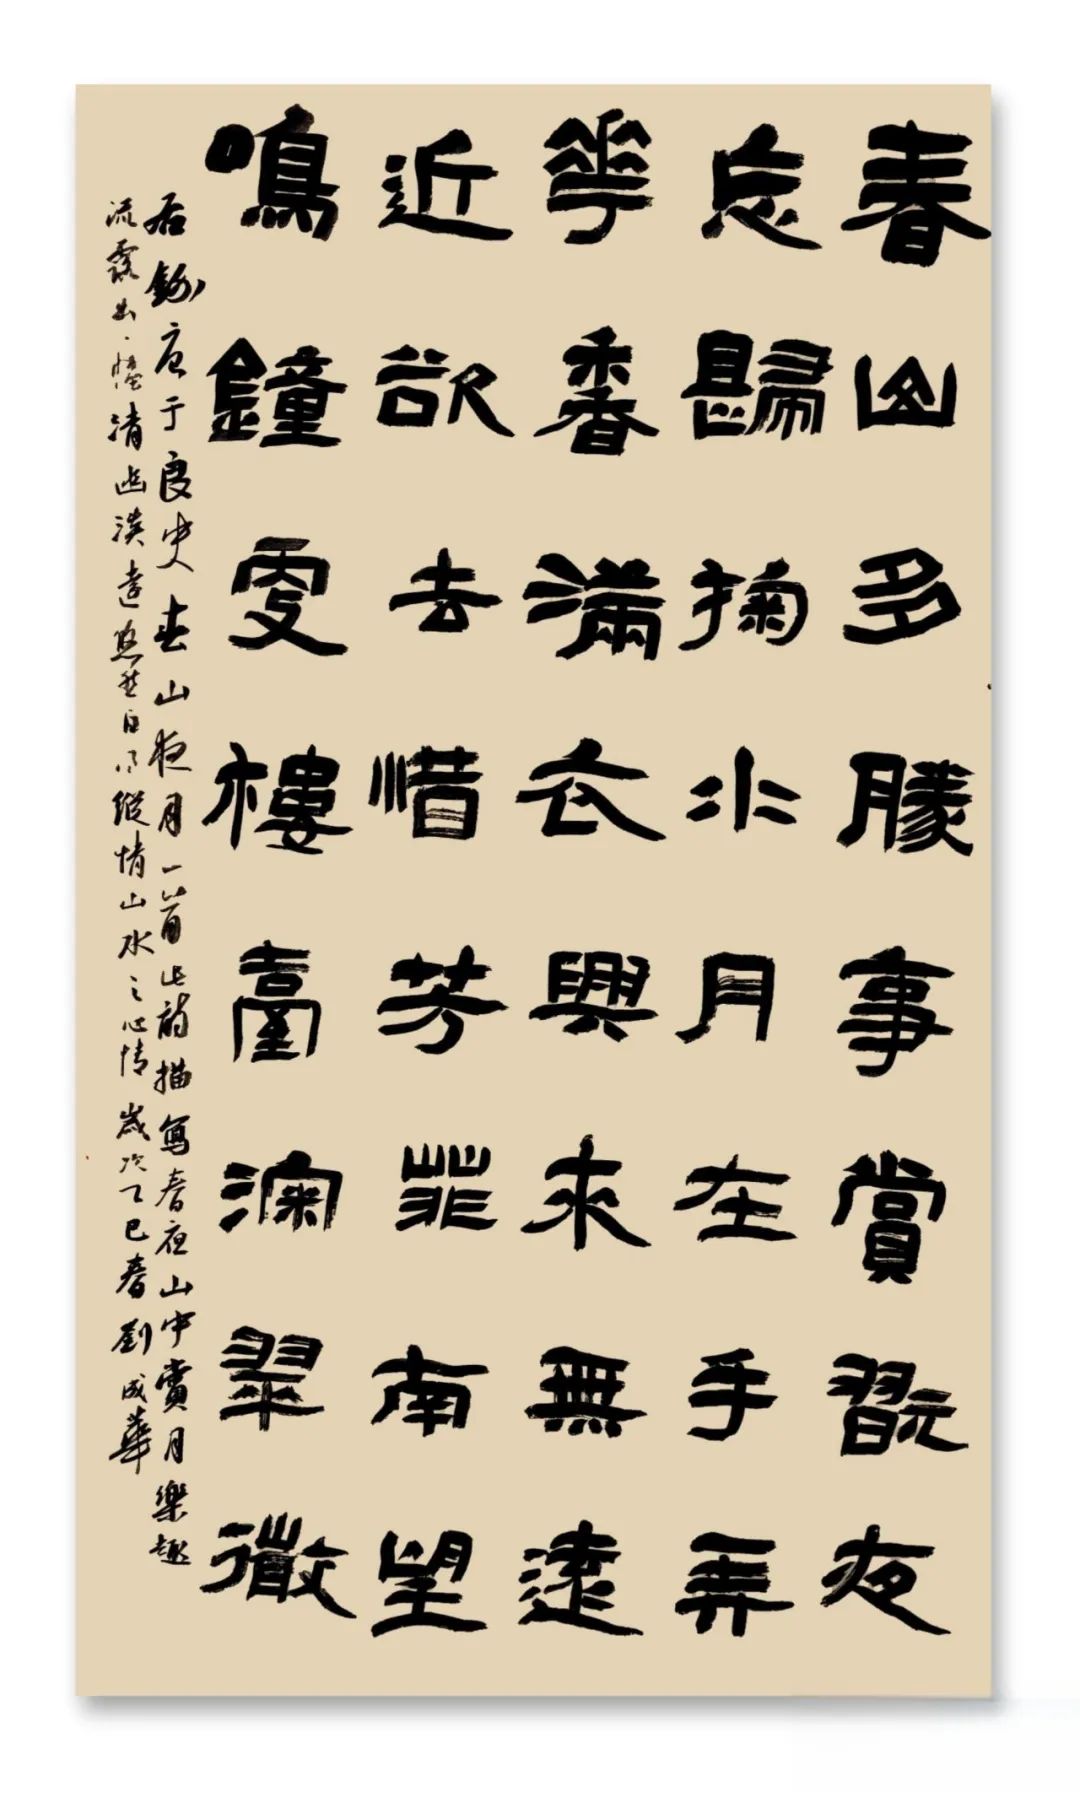 春山多勝事賞翫夜
忘歸掬水月在手弄
華香滿衣興來無遠
近欲去惜芳菲南望
鳴鐘處樓臺深翠微
右錄唐于良史春山夜月一首此詩描寫春夜山中賞月樂趣
流露出一種清幽淡遠悠然自得縱情山水之心情歲次乙巳春劉成華